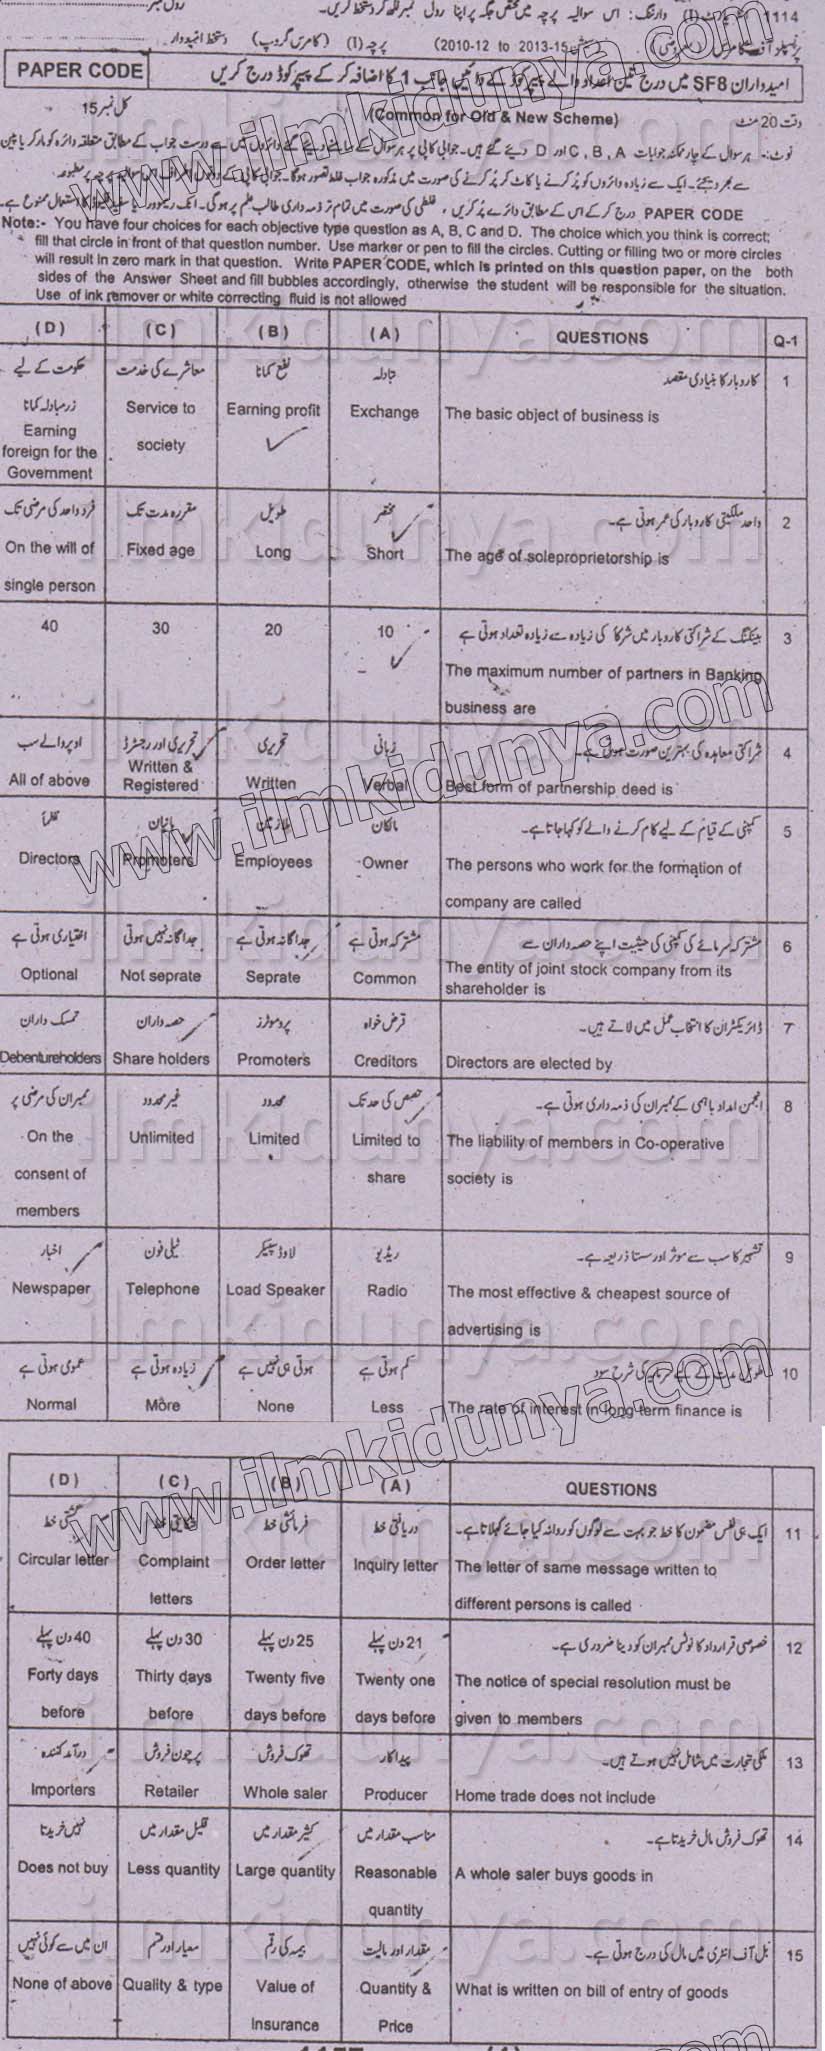 1114
وارننگ: اس سوالیہ پرچہ میں مختص جگہ پر اپنا رول نمبر لکھ کر دستخط کریں۔
رول نمبر
(2010-12 to 2013-15 پرچہ (I) (کامرس گروپ) دستخط امیدوار
PAPER CODE
امیدواران SF8 میں درج تین اعداد والے پیپر کوڈ کے دائیں جانب 1 کا اضافہ کر کے پیپر کوڈ درج کریں
وقت 20 منٹ (Common for Old & New Scheme) کل نمبر 15
نوٹ:- ہر سوال کے چار ممکنہ جوابات C , B , A اور D دیئے گئے ہیں۔ جوابی کاپی پر ہر سوال کے سامنے دیئے گئے دائروں میں سے درست جواب کے مطابق متعلقہ دائرہ کو مارکر یا پین
سے بھر دیجئے۔ ایک سے زیادہ دائروں کو پُر کرنے یا کاٹ کر پُر کرنے کی صورت میں مذکورہ جواب غلط تصور ہوگا۔
PAPER CODE درج کر کے اس کے مطابق دائرے پُر کریں، غلطی کی صورت میں تمام تر ذمہ داری طالب علم پر ہوگی۔ انک ریموور یا سفید فلیوڈ کا استعمال ممنوع ہے۔
Note:- You have four choices for each objective type question as A, B, C and D. The choice which you think is correct;
fill that circle in front of that question number. Use marker or pen to fill the circles. Cutting or filling two or more circles
will result in zero mark in that question. Write PAPER CODE, which is printed on this question paper, on the both
sides of the Answer Sheet and fill bubbles accordingly, otherwise the student will be responsible for the situation.
Use of ink remover or white correcting fluid is not allowed
(D) (C) (B) (A) QUESTIONS Q-1
حکومت کے لیے زرمبادلہ کمانا معاشرے کی خدمت نفع کمانا تبادلہ کاروبار کا بنیادی مقصد 1
Earning foreign for the Government Service to society Earning profit Exchange The basic object of business is
فرد واحد کی مرضی تک مقررہ مدت تک طویل مختصر واحد ملکیتی کاروبار کی عمر ہوتی ہے۔ 2
On the will of single person Fixed age Long Short The age of soleproprietorship is
40 30 20 10 بینکنگ کے شراکتی کاروبار میں شرکا کی زیادہ سے زیادہ تعداد ہوتی ہے 3
The maximum number of partners in Banking
business are
اوپر والے سب تحریری اور رجسٹرڈ تحریری زبانی شراکتی معاہدہ کی بہترین صورت ہوتی ہے۔ 4
All of above Written & Registered Written Verbal Best form of partnership deed is
نظماً بانیان ملازمین مالکان کمپنی کے قیام کے لیے کام کرنے والے کو کہا جاتا ہے۔ 5
Directors Promoters Employees Owner The persons who work for the formation of
company are called
اختیاری ہوتی ہے جداگانہ نہیں ہوتی جداگانہ ہوتی ہے مشترکہ ہوتی ہے مشترکہ سرمائے کی کمپنی کی حیثیت اپنے حصہ داران سے 6
Optional Not seprate Seprate Common The entity of joint stock company from its
shareholder is
تمسک داران حصہ داران پروموٹرز قرض خواہ ڈائریکٹران کا انتخاب عمل میں لاتے ہیں۔ 7
Debentureholders Share holders Promoters Creditors Directors are elected by
ممبران کی مرضی پر غیر محدود محدود حصص کی حد تک انجمن امداد باہمی کے ممبران کی ذمہ داری ہوتی ہے۔ 8
On the consent of members Unlimited Limited Limited to share The liability of members in Co-operative
society is
اخبار ٹیلی فون لاؤڈ سپیکر ریڈیو تشہیر کا سب سے موثر اور سستا ذریعہ ہے۔ 9
Newspaper Telephone Load Speaker Radio The most effective & cheapest source of
advertising is
عمومی ہوتی ہے زیادہ ہوتی ہے ہوتی ہی نہیں ہے کم ہوتی ہے طویل مدت کے لیے سرمایہ کی شرح سود 10
Normal More None Less The rate of interest in long term finance is
(D) (C) (B) (A) QUESTIONS
گشتی خط شکایتی خط فرمائشی خط دریافتی خط ایک ہی نفس مضمون کا خط جو بہت سے لوگوں کو روانہ کیا جائے کہلاتا ہے۔ 11
Circular letter Complaint letters Order letter Inquiry letter The letter of same message written to
different persons is called
40 دن پہلے 30 دن پہلے 25 دن پہلے 21 دن پہلے خصوصی قرارداد کا نوٹس ممبران کو دینا ضروری ہے۔ 12
Forty days before Thirty days before Twenty five days before Twenty one days before The notice of special resolution must be
given to members
درآمد کنندہ پرچون فروش تھوک فروش پیداکار ملکی تجارت میں شامل نہیں ہوتے ہیں۔ 13
Importers Retailer Whole saler Producer Home trade does not include
نہیں خریدتا قلیل مقدار میں کثیر مقدار میں مناسب مقدار میں تھوک فروش مال خریدتا ہے۔ 14
Does not buy Less quantity Large quantity Reasonable quantity A whole saler buys goods in
ان میں سے کوئی نہیں معیار اور قسم بیمہ کی رقم مقدار اور مالیت بل آف انٹری میں مال کی درج ہوتی ہے۔ 15
None of above Quality & type Value of Insurance Quantity & Price What is written on bill of entry of goods
www.ilmkidunya.com